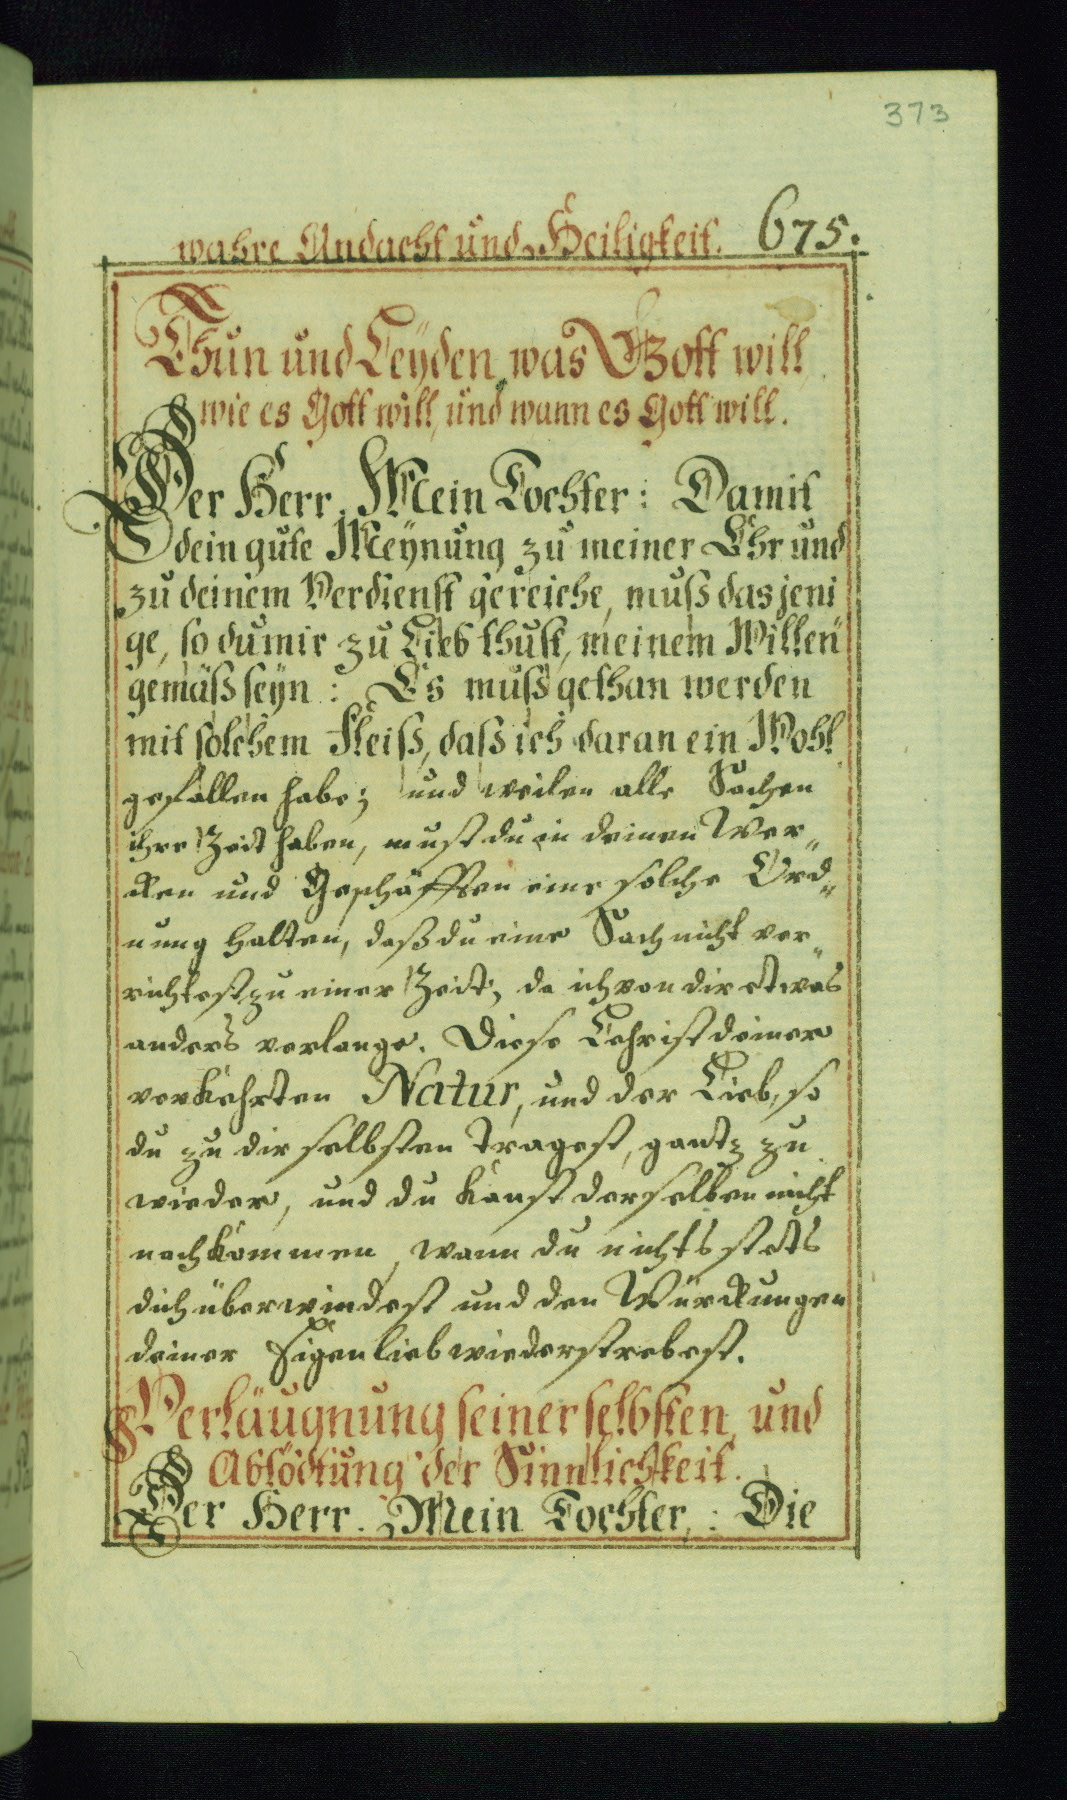 373
wahre Andacht und Heiligkeit. 675.
Thun und Leÿden, was Gott will,
wie es Gott will, und wann es Gott will.
Der Herr. Mein Tochter: Damit
dein gute Meÿnung zu meiner Ehr und
zu deinem Verdienst gereiche, muß das jeni
ge, so du mir zu Lieb thust, meinem Willen
gemäß seÿn: Es muß gethan werden
mit solchem Fleiß, daß ich daran ein Wohl
gefallen habe; und weilen alle Sachen
ihre Zeit haben, must du in deinen Wer„
cken und Geschäfften eine solche Ord„
nung halten, daß du eine Sach nicht ver„
richtest zu einer Zeit, da ich von dir etwas
anders verlange. Diese Lehr ist deiner
verkehrten Natur, und der Lieb, so
du zu dir selbsten tragest, gantz zu
wieder, und du kanst derselben nicht
nachkommen, wann du nichts stets
dich überwindest und den Würckungen
deiner Eigenlieb wiederstrebest.
Verläugnung seiner selbsten, und
Abtödtung der Sinnlichkeit.
Der Herr. Mein Tochter: Die